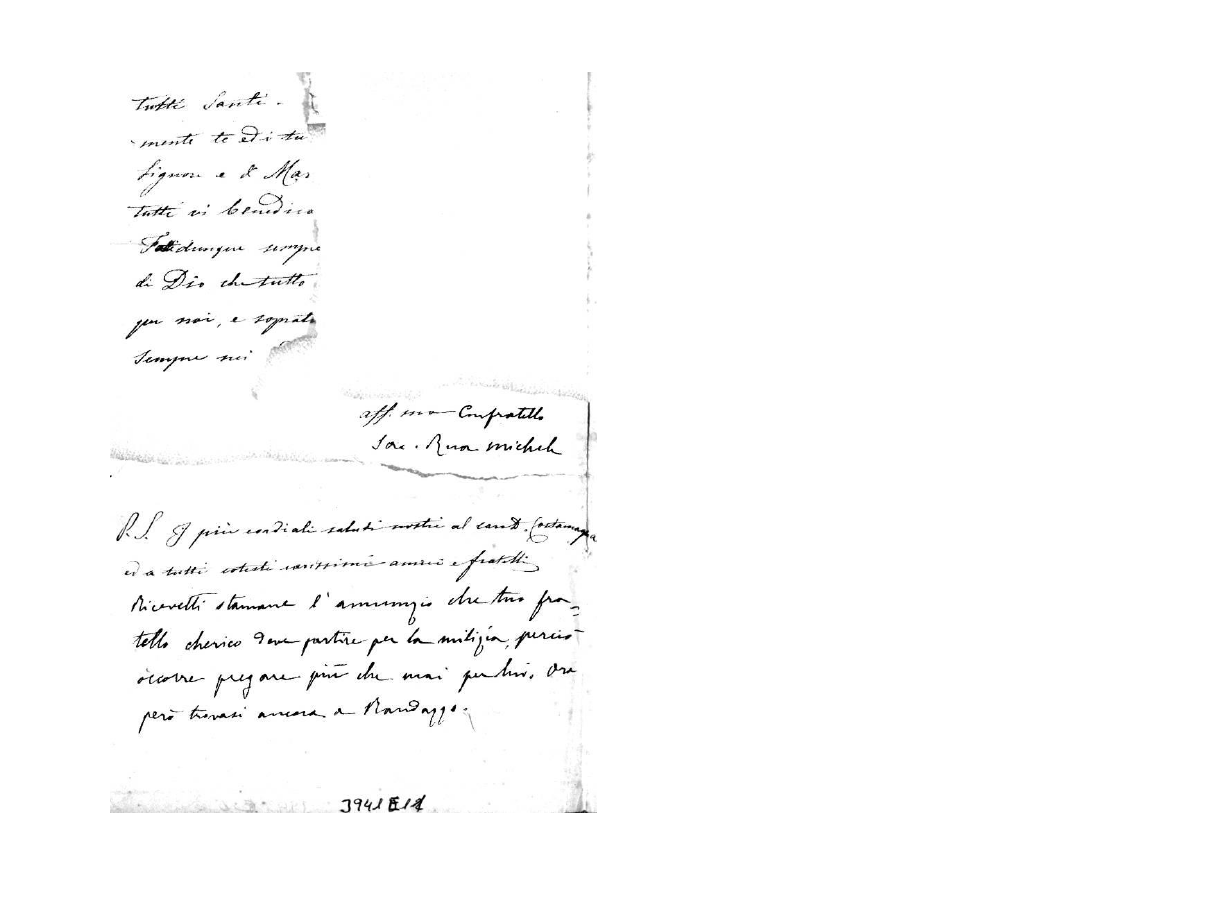 tutti Santi.
mente te ed i tu
Signore e di Mar
tutti vi benedica
Fate dunque sempre
di Dio che tutto
per noi, e soprat
sempre nei
aff.mo Confratello
Sac. Rua Michele
P.S. I più cordiali saluti nostri al caro D. Costamagna
ed a tutti cotesti carissimi amici e fratelli
Ricevetti stamane l'annunzio che tuo fra=
tello cherico deve partire per la milizia, perciò
occorre pregare più che mai per lui. Ora
però trovasi ancora a Randazzo.
3941E1